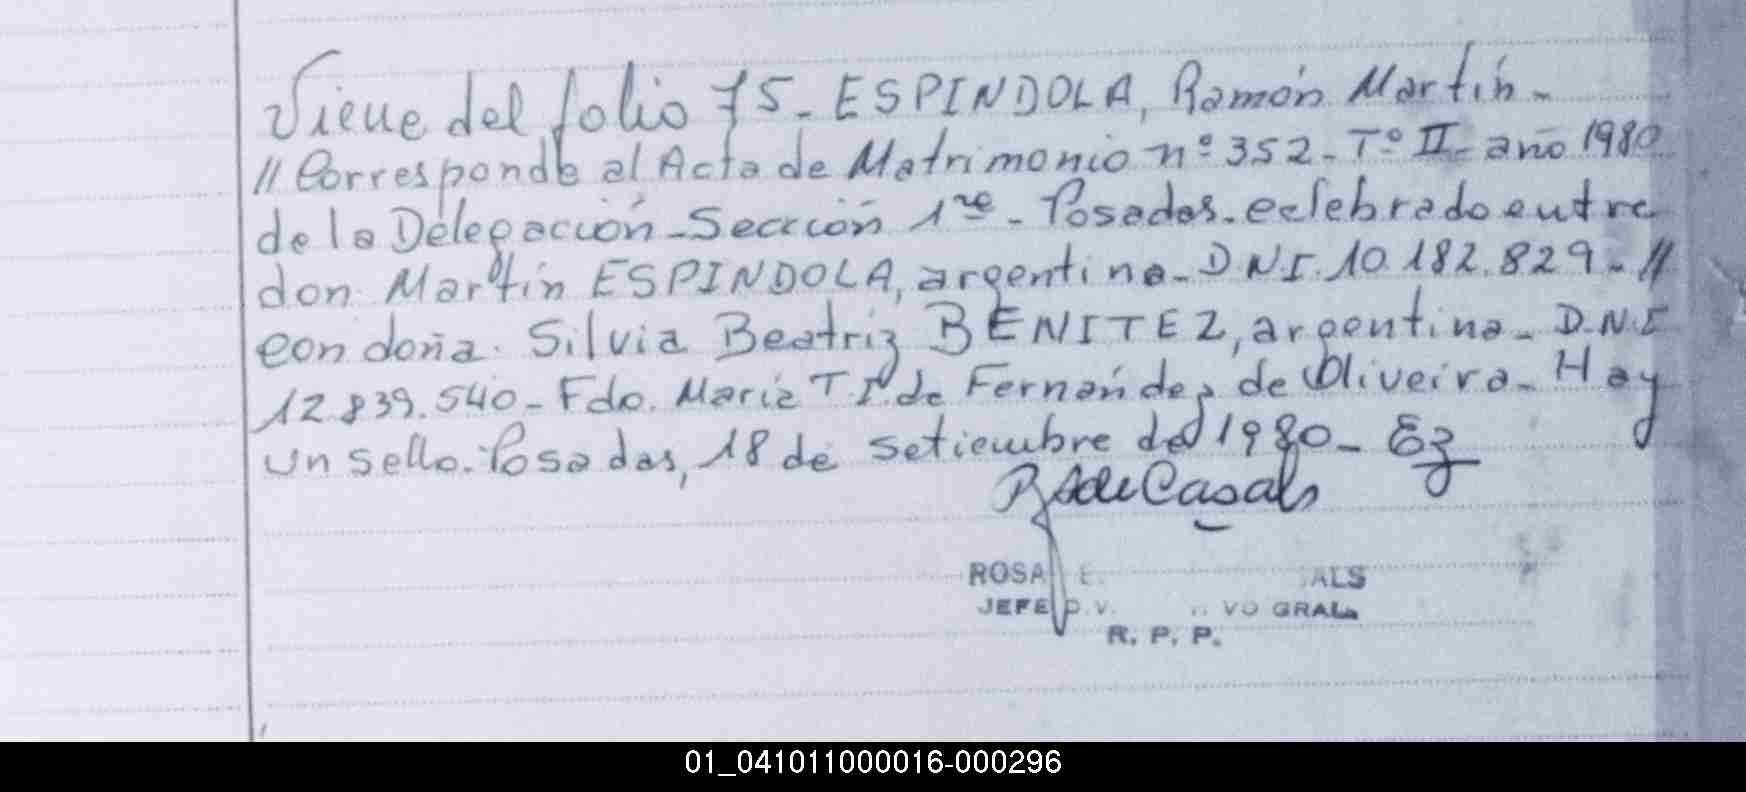 Viene del folio 75. ESPINDOLA, Ramón Martín.
// Corresponde al Acta de Matrimonio nº 352. Tº II. año 1980
de la Delegación. Sección 1ra. Posadas. celebrado entre
don Martín ESPINDOLA, argentino. D N I. 10.182.829. //
con doña Silvia Beatriz BENITEZ, argentina. D.N.I
12.839.540. Fdo. María T. I. de Fernández de Oliveira. Hay
un sello. Posadas, 18 de setiembre del 1980. Ez
de Casals
ROSA E. ALS
JEFE VO GRAL.
R. P. P.
01_041011000016-000296